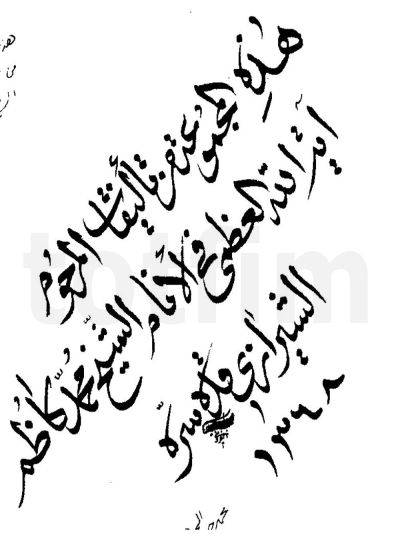 هذه المجموعة من تأليفات المرحوم
آية الله العظمى في الأنام الشيخ محمد كاظم
الشيرازي قدّه سره
۱۳۶۸
totfim